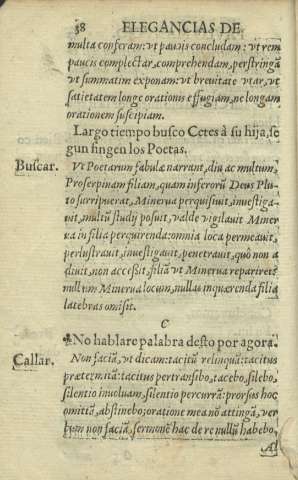 38 ELEGANCIAS DE
multa conferam: vt paucis concludam: vt rem
paucis complectar, comprehendam, perstringã
vt summatim exponam: vt breuitate vtar, vt
satietatem longe orationis effugiam, ne longam
orationem suscipiam.
Largo tiempo busco Cetes à su hija, se
gun fingen los Poetas.
Buscar.
Vt Poetarum fabulæ narrant, diu ac multum
Proserpinam filiam, quam inferorũ Deus Plu
to surripuerat, Minerua perquisiuit, inuestiga
uit, multũ studij posuit, valde vigilauit Miner
ua in filia perquirenda: omnia loca permeauit,
perlustrauit, inuestigauit, penetrauit, quò non a
diuit, non accessit, filiã vt Minerua reparirets
nullum Minerua locum, nullas inquærenda filia
latebras omisit.
C
Callar.
No hablare palabra desto por agora.
Non faciã, vt dicam: tacitũ relinquã: tacitus
prætermittã: tacitus pertransibo, tacebo, silebo,
silentio inuoluam, silentio percurrã: prorsus hoc
omittã, abstinebo; oratione mea nõ attingã, ver
bum non faciã, sermonẽ hac de re nullũ habebo,
A